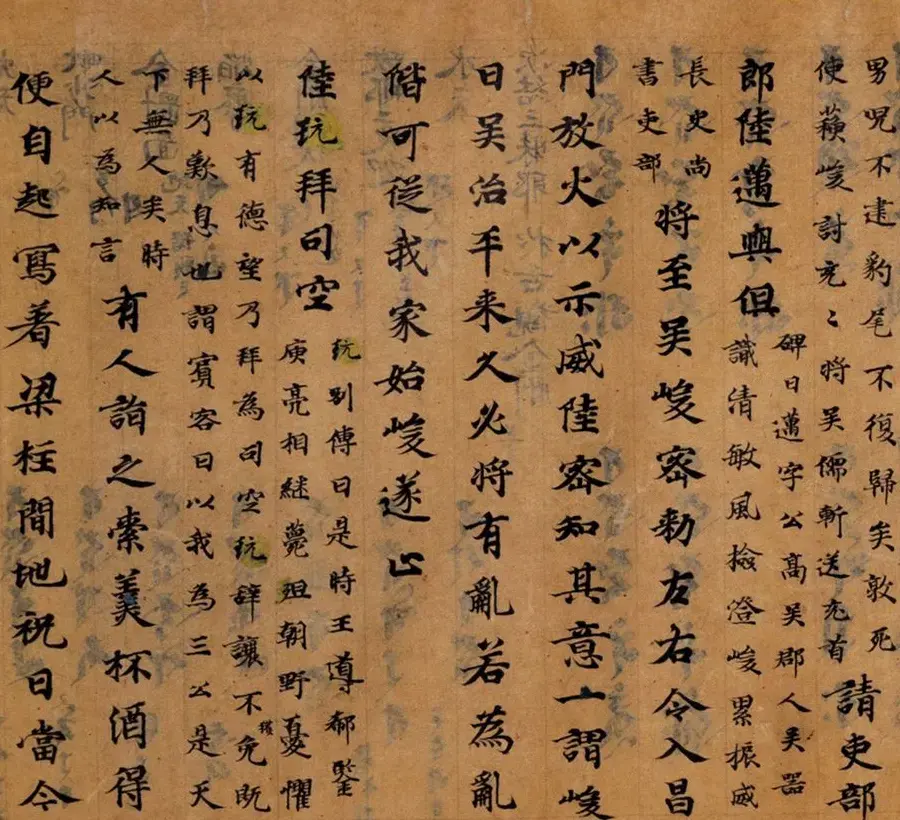 男兒不建豹尾不復歸矣敦死
使蘓峻討充〻將吴儒斬送充首
請吏部
郎陸邁與但
碑曰邁字公高吴郡人矣器
識清敏風檢澄峻累振威
長史尚
書吏部
將至吴峻密勑左右令入昌
門放火以示威陸密知其意一謂峻
曰吴治平来久必將有亂若為亂
偕可従我家始峻遂止
陸玩拜司空
玩別傳曰是時王導郗鑒
庾亮相継薨殂朝野憂懼
以玩有德望乃拜為司空玩辝讓不獲免既
拜乃歎息也謂賓客曰以我為三公是天
下無人矣時
人以為知言
有人詣之索羙杯酒得
便自起寫著梁柱間地祝曰當今